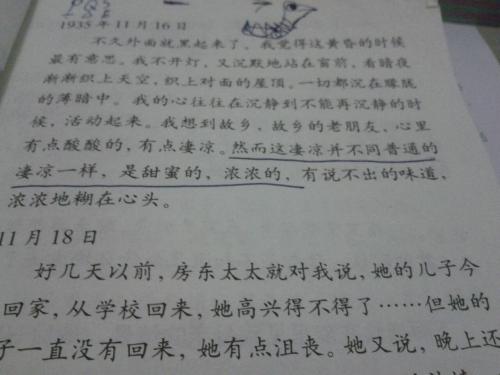 1935年11月16日
不久外面就黑起来了，我觉得这黄昏的时候
最有意思。我不开灯，又沉默地站在窗前，看暗夜
渐渐织上天空，织上对面的屋顶。一切都沉在朦胧
的薄暗中。我的心往往在沉静到不能再沉静的时
候，活动起来。我想到故乡，故乡的老朋友，心里
有点酸酸的，有点凄凉。然而这凄凉并不同普通的
凄凉一样，是甜蜜的，浓浓的，有说不出的味道，
浓浓地糊在心头。
11月18日
好几天以前，房东太太就对我说，她的儿子今
回家，从学校回来，她高兴得不得了……但她的
子一直没有回来，她有点沮丧。她又说，晚上还